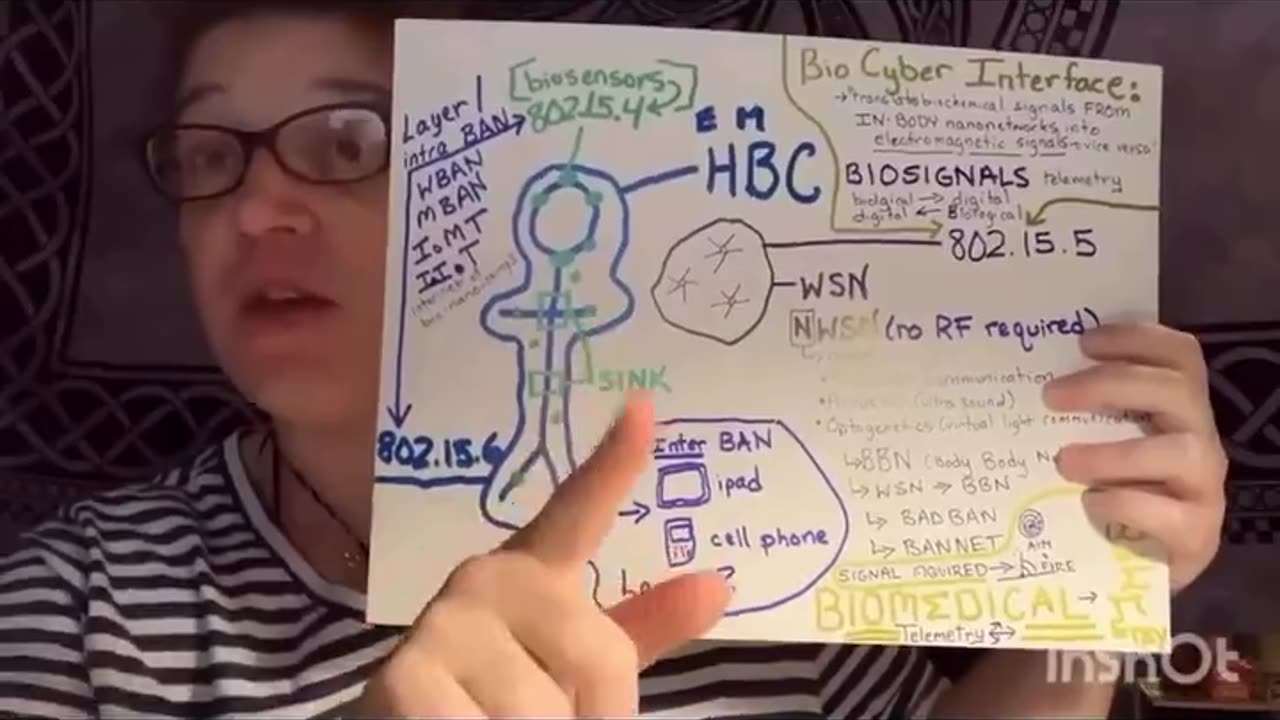 [biosensors]
802.15.4
Layer 1
intra BAN
WBAN
MBAN
IoMT
IIoT
internet of
bio-nano-things
802.15.6
E M
HBC
SINK
WSN
Inter BAN
ipad
cell phone
Bio Cyber Interface:
→ Translate biochemical signals FROM
IN-BODY nanonetworks into
electromagnetic signals
BIOSIGNALS telemetry
biolgical → digital
digital ← Biological
802.15.5
NWSN (no RF required)
communication
(ultra sound)
• Optogenetics (virtual light communication
↳ BBN (Body Body N
↳ WSN → BBN
↳ BAD BAN
↳ BANNET
AIM
FIRE
SIGNAL AQUIRED →
BIOMEDICAL →
Telemetry
InShOt